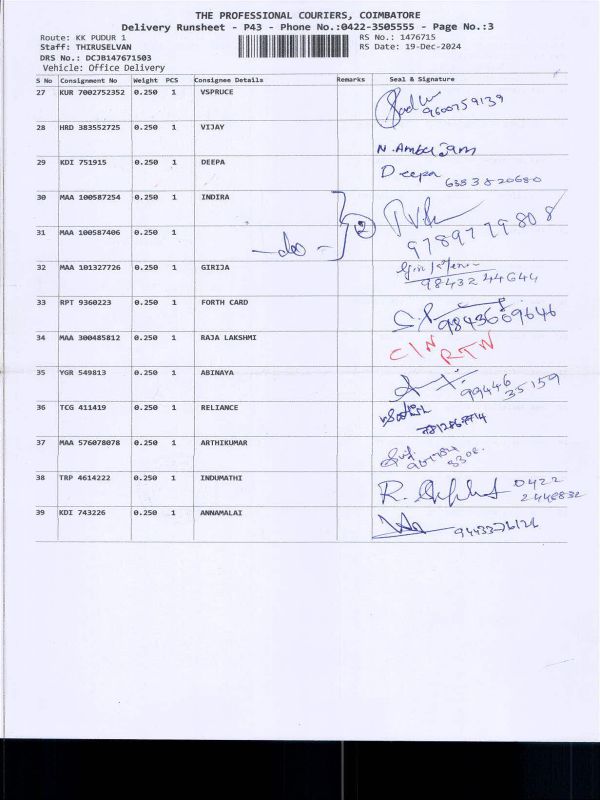 THE PROFESSIONAL COURIERS, COIMBATORE
Delivery Runsheet - P43 - Phone No.:0422-3505555 - Page No.:3
Route: KK PUDUR 1 RS No.: 1476715
Staff: THIRUSELVAN RS Date: 19-Dec-2024
DRS No.: DCJB147671503
Vehicle: Office Delivery
S No Consignment No Weight PCS Consignee Details Remarks Seal & Signature
27 KUR 7002752352 0.250 1 VSPRUCE 9600759139
28 HRD 383552725 0.250 1 VIJAY N. Ambu
29 KDI 751915 0.250 1 DEEPA Deepa 6383820680
30 MAA 100587254 0.250 1 INDIRA 2
31 MAA 100587406 0.250 1 -do- 9789779808
32 MAA 101327726 0.250 1 GIRIJA 9843244644
33 RPT 9360223 0.250 1 FORTH CARD 9843669646
34 MAA 300485812 0.250 1 RAJA LAKSHMI C/N RTN
35 YGR 549813 0.250 1 ABINAYA 99446 35159
36 TCG 411419 0.250 1 RELIANCE
37 MAA 576078078 0.250 1 ARTHIKUMAR
38 TRP 4614222 0.250 1 INDUMATHI R. 0422 2446832
39 KDI 743226 0.250 1 ANNAMALAI